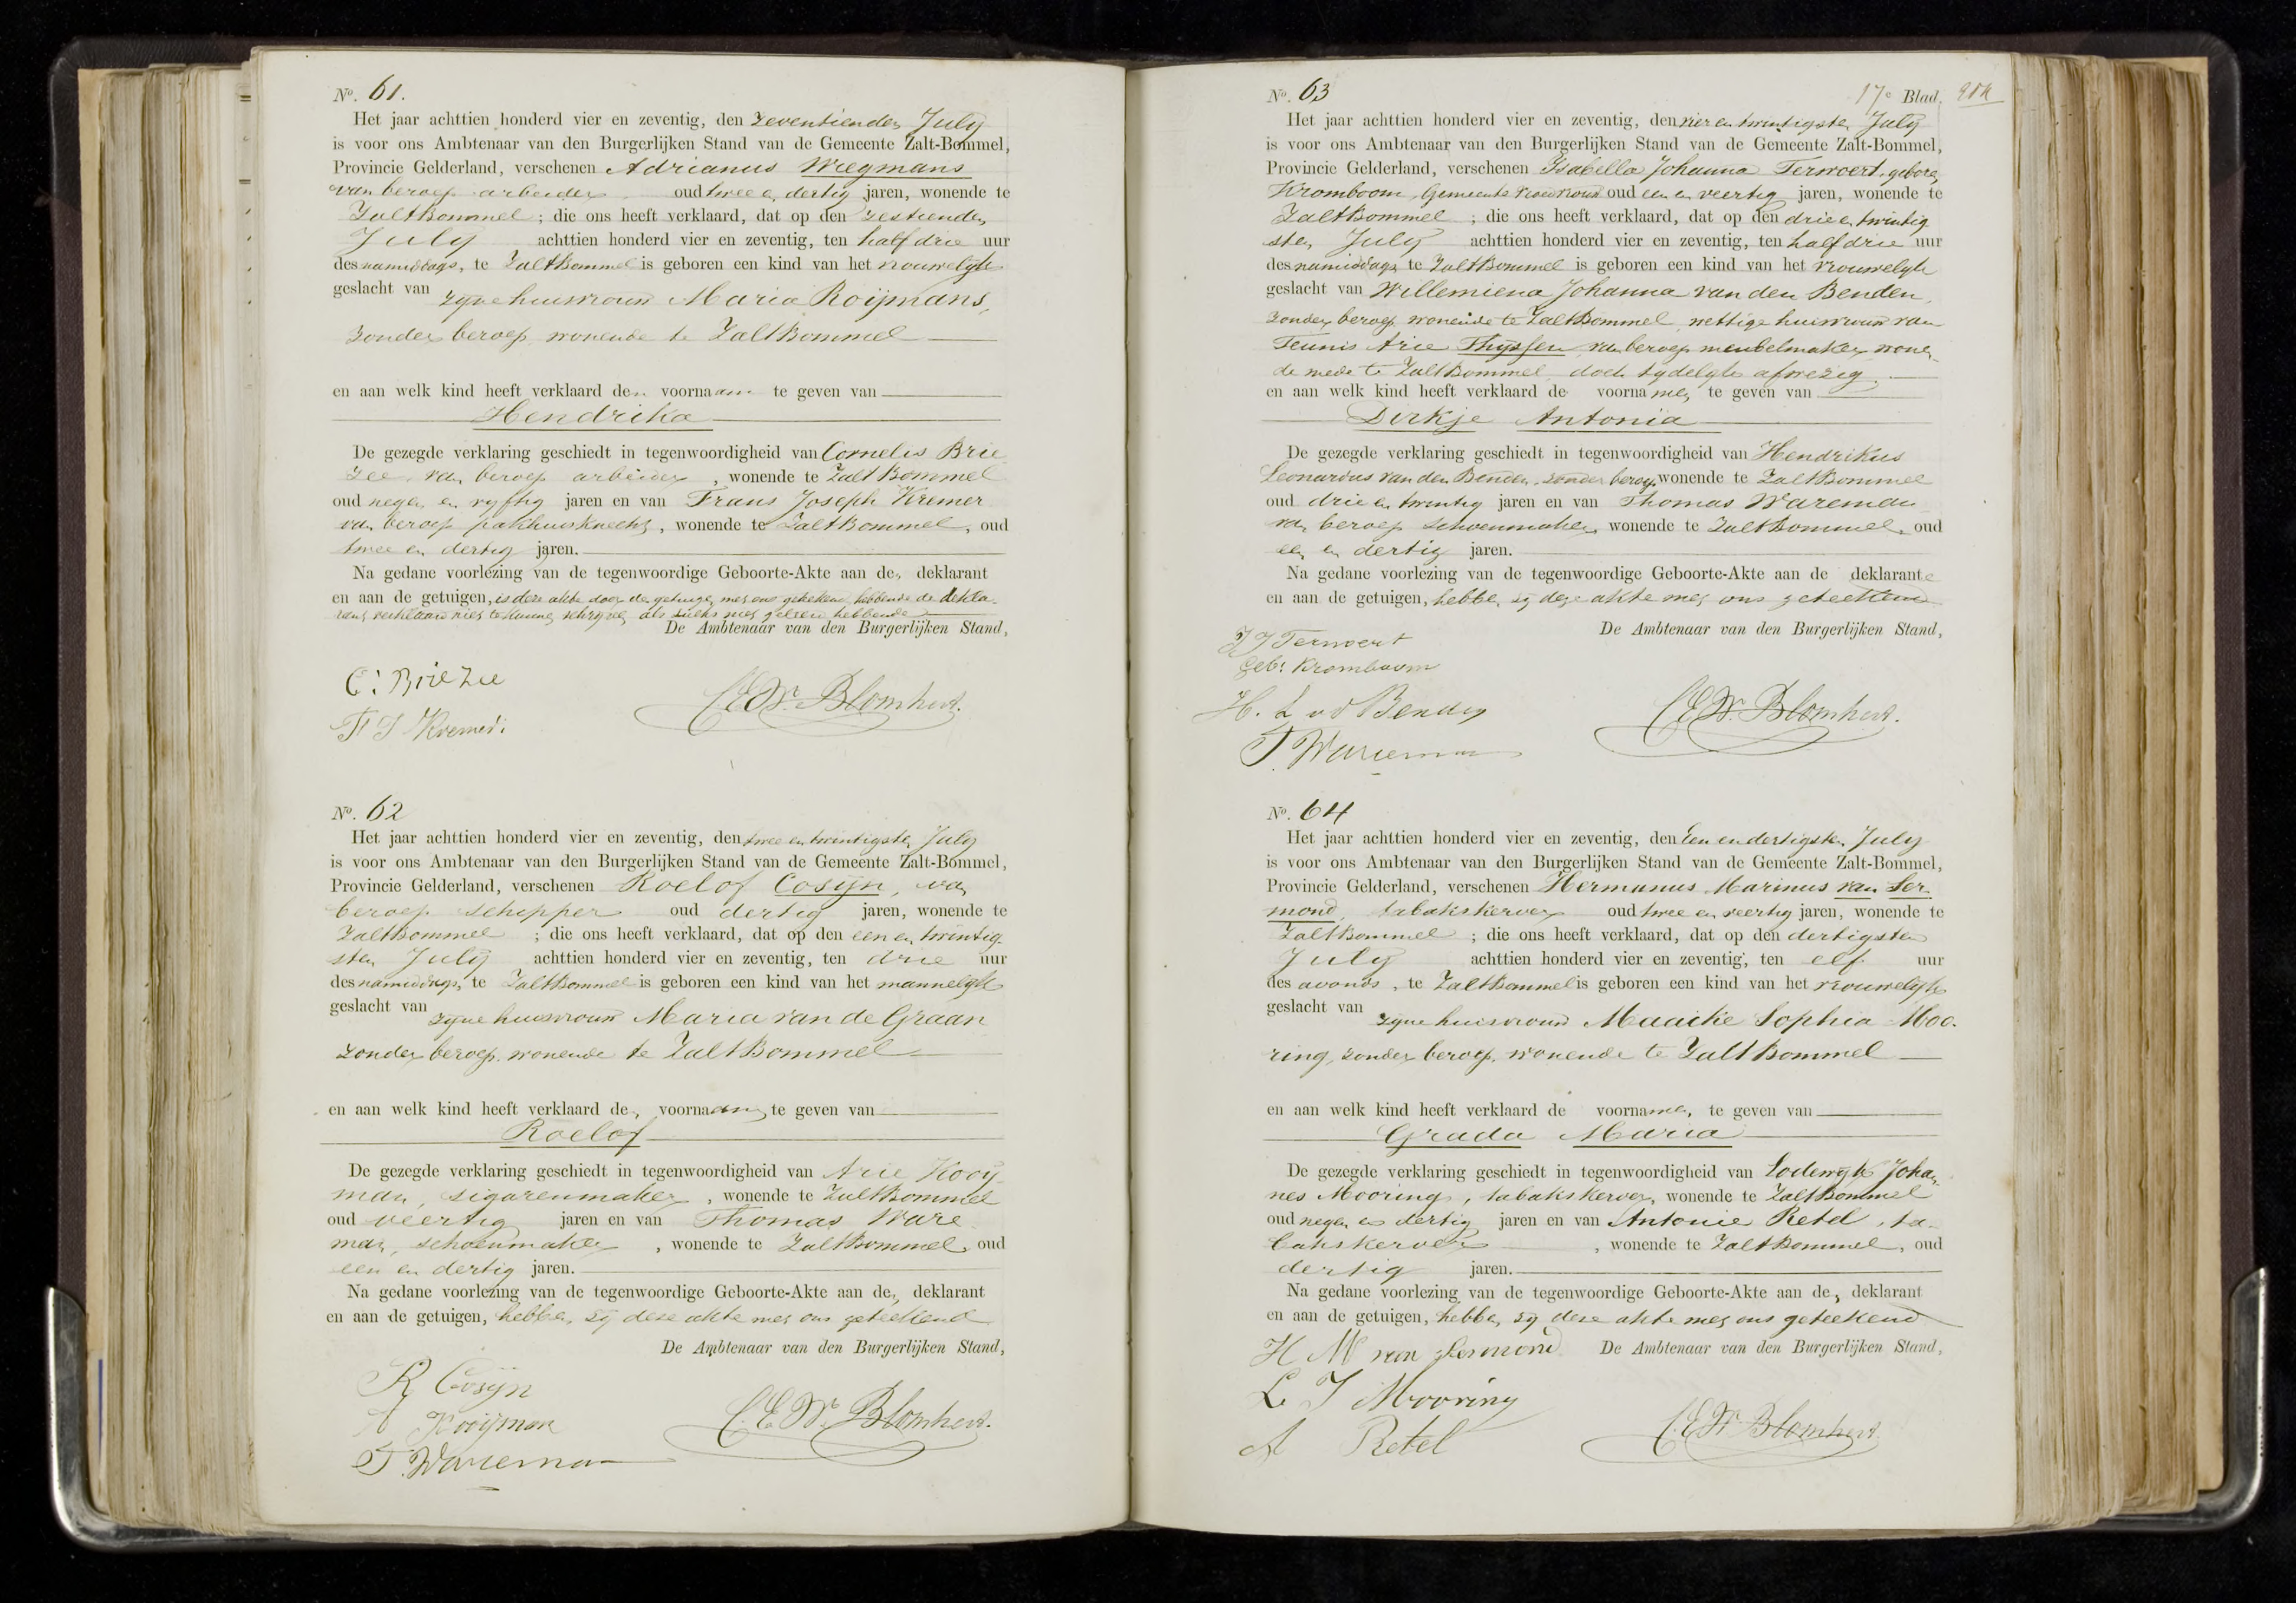 No. 61.
Het jaar achttien honderd vier en zeventig, den zeventienden July
is voor ons Ambtenaar van den Burgerlijken Stand van de Gemeente Zalt-Bommel,
Provincie Gelderland, verschenen Adrianus Wegmans
van beroep arbeider oud twee en dertig jaren, wonende te
ZaltBommel ; die ons heeft verklaard, dat op den zestienden
July achttien honderd vier en zeventig, ten half drie uur
des namiddags, te ZaltBommel is geboren een kind van het vrouwelyk
geslacht van zyne huisvrouw Maria Roijmans,
zonder beroep, wonende te ZaltBommel
en aan welk kind heeft verklaard den voornaam te geven van
Hendrika
De gezegde verklaring geschiedt in tegenwoordigheid van Cornelis Brie
zee, van beroep arbeider , wonende te ZaltBommel
oud negen en vyftig jaren en van Frans Joseph Kremer
van beroep pakhuisknecht, wonende te ZaltBommel, oud
twee en dertig jaren.
Na gedane voorlezing van de tegenwoordige Geboorte-Akte aan den deklarant
en aan de getuigen, is deze akte door de getuigen met ons geteekend, hebbende de dekla-
rant verklaard niet te kunnen schryven als zulks niet geleerd hebbende
De Ambtenaar van den Burgerlijken Stand,
C: Briezee
F J Kremer
C.E.W. Blomhert.
No. 62
Het jaar achttien honderd vier en zeventig, den twee en twintigsten July
is voor ons Ambtenaar van den Burgerlijken Stand van de Gemeente Zalt-Bommel,
Provincie Gelderland, verschenen Roelof Cosijn, van
beroep schipper oud dertig jaren, wonende te
ZaltBommel ; die ons heeft verklaard, dat op den een en twintig-
sten July achttien honderd vier en zeventig, ten drie uur
des namiddags, te ZaltBommel is geboren een kind van het mannelyk
geslacht van zyne huisvrouw Maria van de Graan
zonder beroep, wonende te ZaltBommel
en aan welk kind heeft verklaard den voornaam te geven van
Roelof
De gezegde verklaring geschiedt in tegenwoordigheid van Arie Kooij-
man, sigarenmaker , wonende te ZaltBommel
oud veertig jaren en van Thomas Ware
man, schoenmaker , wonende te ZaltBommel, oud
een en dertig jaren.
Na gedane voorlezing van de tegenwoordige Geboorte-Akte aan den deklarant
en aan de getuigen, hebben zij deze akte met ons geteekend
De Ambtenaar van den Burgerlijken Stand,
R Cosijn
A Kooijman
T. Wareman
C.E.W. Blomhert.
17e Blad.
No. 63
Het jaar achttien honderd vier en zeventig, den vier en twintigsten July
is voor ons Ambtenaar van den Burgerlijken Stand van de Gemeente Zalt-Bommel,
Provincie Gelderland, verschenen Ysabella Johanna Terwoert, geboren
Kromboom, Gemeente vroedvrouw oud een en veertig jaren, wonende te
ZaltBommel ; die ons heeft verklaard, dat op den drie en twintig
sten July achttien honderd vier en zeventig, ten half drie uur
des namiddags te ZaltBommel is geboren een kind van het vrouwelyk
geslacht van Willemiena Johanna van den Benden,
zonder beroep, wonende te ZaltBommel, wettige huisvrouw van
Teunis Arie Thijssen, van beroep meubelmaker, wonen-
de mede te ZaltBommel, doch tydelyk afwezig
en aan welk kind heeft verklaard de voornamen te geven van
Dirkje Antonia
De gezegde verklaring geschiedt in tegenwoordigheid van Hendrikus
Leonardus van den Benden, zonder beroep, wonende te ZaltBommel
oud drie en twintig jaren en van Thomas Wareman
van beroep schoenmaker, wonende te ZaltBommel, oud
een en dertig jaren.
Na gedane voorlezing van de tegenwoordige Geboorte-Akte aan de deklarante
en aan de getuigen, hebben zij deze akte met ons geteekend
De Ambtenaar van den Burgerlijken Stand,
I J Terwoert
geb: Kromboom
H. L v d Benden
T. Wareman
C.E.W. Blomhert.
No. 64
Het jaar achttien honderd vier en zeventig, den Een en dertigsten July
is voor ons Ambtenaar van den Burgerlijken Stand van de Gemeente Zalt-Bommel,
Provincie Gelderland, verschenen Hermanus Marinus van Ser-
mond, tabakskerver oud twee en veertig jaren, wonende te
ZaltBommel ; die ons heeft verklaard, dat op den dertigsten
July achttien honderd vier en zeventig, ten elf uur
des avonds, te ZaltBommel is geboren een kind van het vrouwelijk
geslacht van zyne huisvrouw Maaike Sophia Moo-
ring, zonder beroep, wonende te ZaltBommel
en aan welk kind heeft verklaard de voornamen te geven van
Grada Maria
De gezegde verklaring geschiedt in tegenwoordigheid van Lodewyk Johan-
nes Mooring, tabakskerver, wonende te ZaltBommel
oud negen en dertig jaren en van Antonie Retel, ta-
bakskerver , wonende te ZaltBommel, oud
dertig jaren.
Na gedane voorlezing van de tegenwoordige Geboorte-Akte aan den deklarant
en aan de getuigen, hebben zij deze akte met ons geteekend
De Ambtenaar van den Burgerlijken Stand,
H M van Sermond
L J Mooring
A Retel
C.E.W. Blomhert.